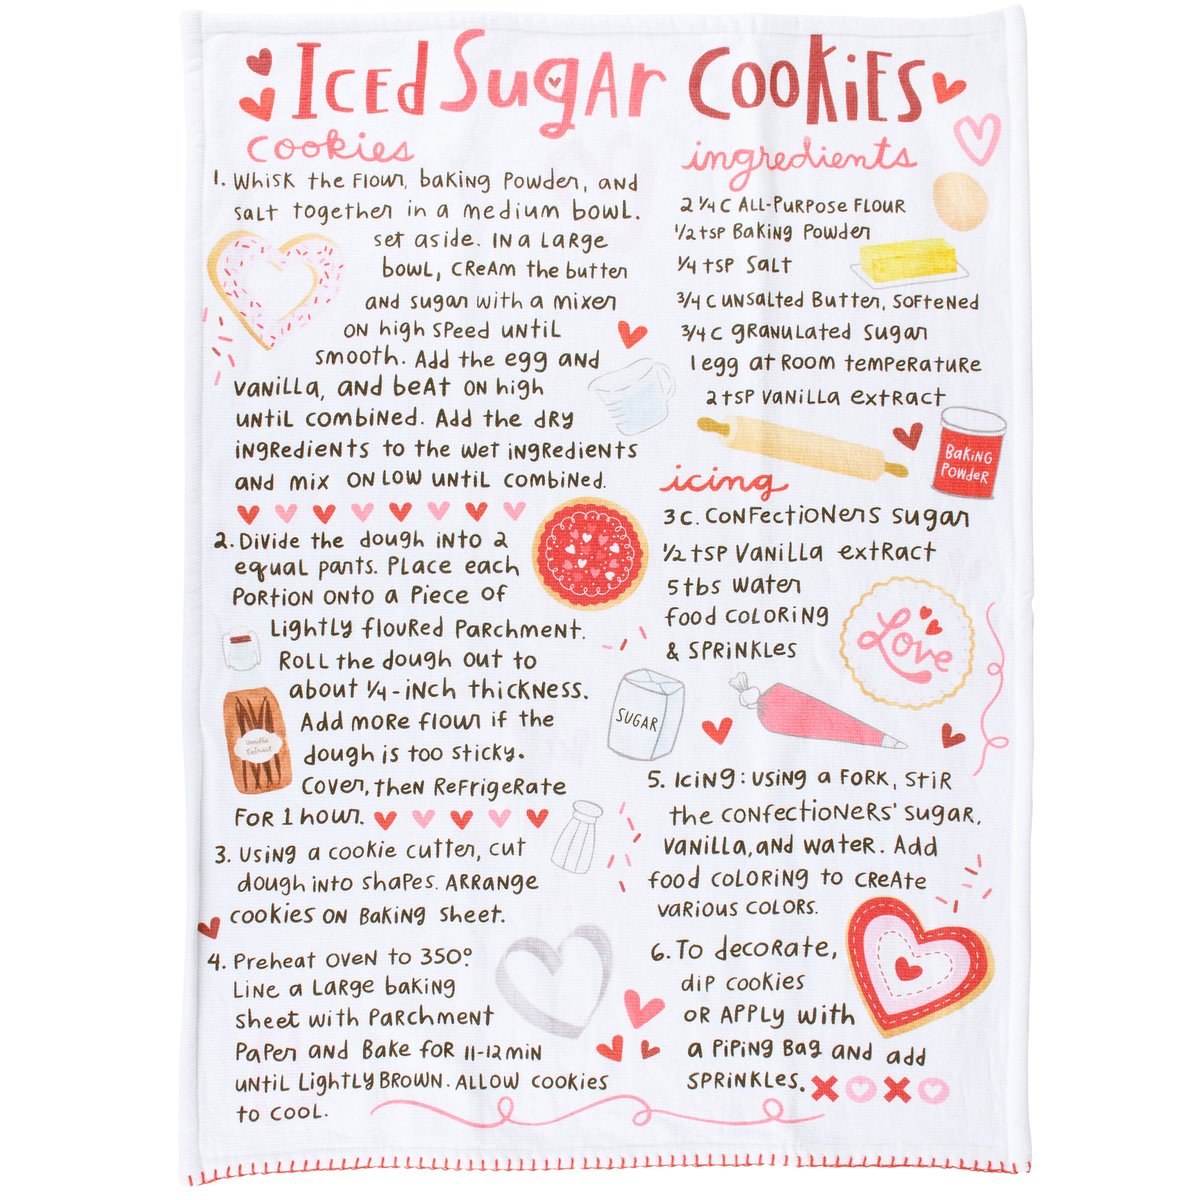 Iced Sugar Cookies
cookies
1. Whisk the flour, baking powder, and
salt together in a medium bowl.
set aside. In a large
bowl, cream the butter
and sugar with a mixer
on high speed until
smooth. Add the egg and
vanilla, and beat on high
until combined. Add the dry
ingredients to the wet ingredients
and mix on low until combined.
2. Divide the dough into 2
equal parts. Place each
portion onto a piece of
lightly floured parchment.
Roll the dough out to
about 1/4-inch thickness.
Add more flour if the
dough is too sticky.
Cover, then refrigerate
for 1 hour.
Vanilla
Extract
3. Using a cookie cutter, cut
dough into shapes. Arrange
cookies on baking sheet.
4. Preheat oven to 350°.
Line a large baking
sheet with parchment
paper and bake for 11-12 min
until lightly brown. Allow cookies
to cool.
ingredients
2 1/4 c all-purpose flour
1/2 tsp baking powder
1/4 tsp salt
3/4 c unsalted butter, softened
3/4 c granulated sugar
1 egg at room temperature
2 tsp vanilla extract
Baking
Powder
icing
3 c. confectioners sugar
1/2 tsp vanilla extract
5 tbs water
food coloring
& sprinkles
Love
SUGAR
5. Icing: using a fork, stir
the confectioners' sugar,
vanilla, and water. Add
food coloring to create
various colors.
6. To decorate,
dip cookies
or apply with
a piping bag and add
sprinkles. XOXO